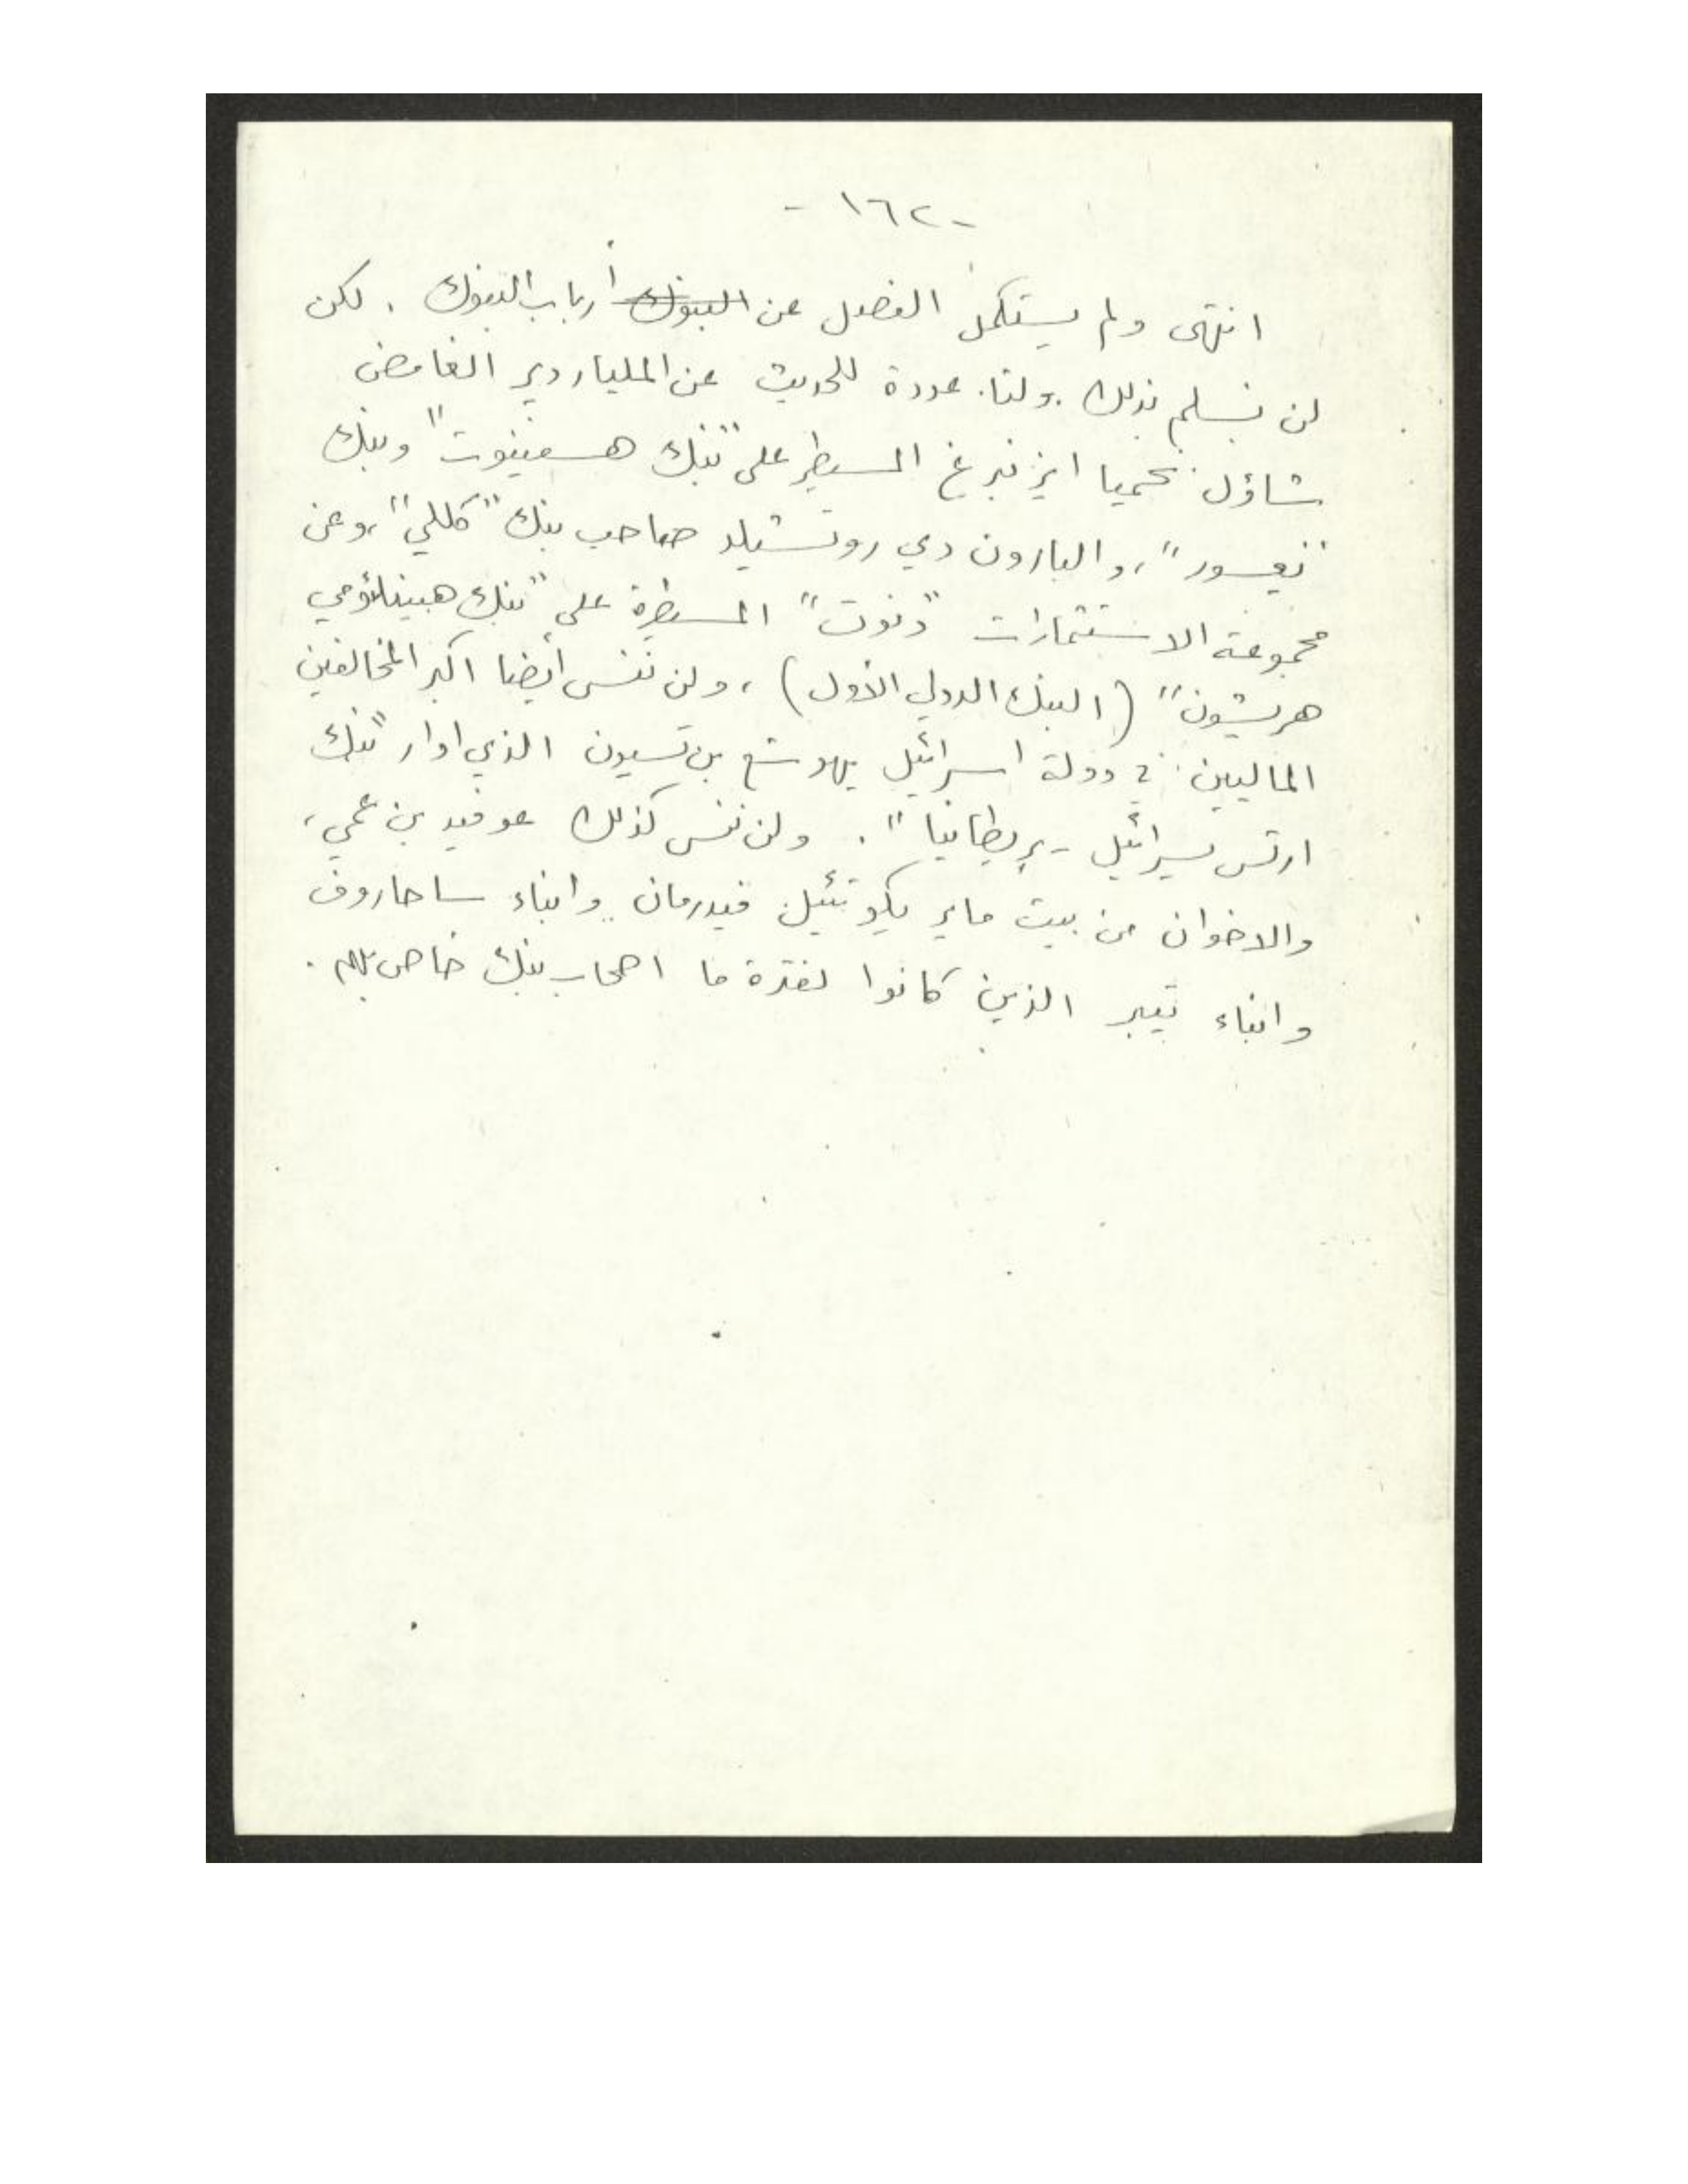 - ١٦٢ -
انتهى ولم يستكمل الفصل عن البنوك أرباب البنوك . لكن
لن نسلم بذلك . ولنا عودة للحديث عن الملياردير الغامض
شاؤل نحميا ايزنبرغ المسيطر على "بنك هسفينوت" وبنك
"يعسور"، والبارون دي روتشيلد صاحب بنك "كللي"، وعن
مجموعة الاستثمارات "دنوت" المسيطرة على "بنك هبينلئومي
هريشون" (البنك الدولي الأول) ، ولن ننسى أيضا اكبر المخالفين
الماليين في دولة اسرائيل يهوشع بن تسيون الذي ادار "بنك
ارتس يسرائيل - بريطانيا" . ولن ننس كذلك عوفيد بن عمي ،
والاخوان من بيت ماير يكوتئيل فيدرمان وابناء ساحاروف
وابناء تيبر الذين كانوا لفترة ما اصحاب بنك خاص بهم .